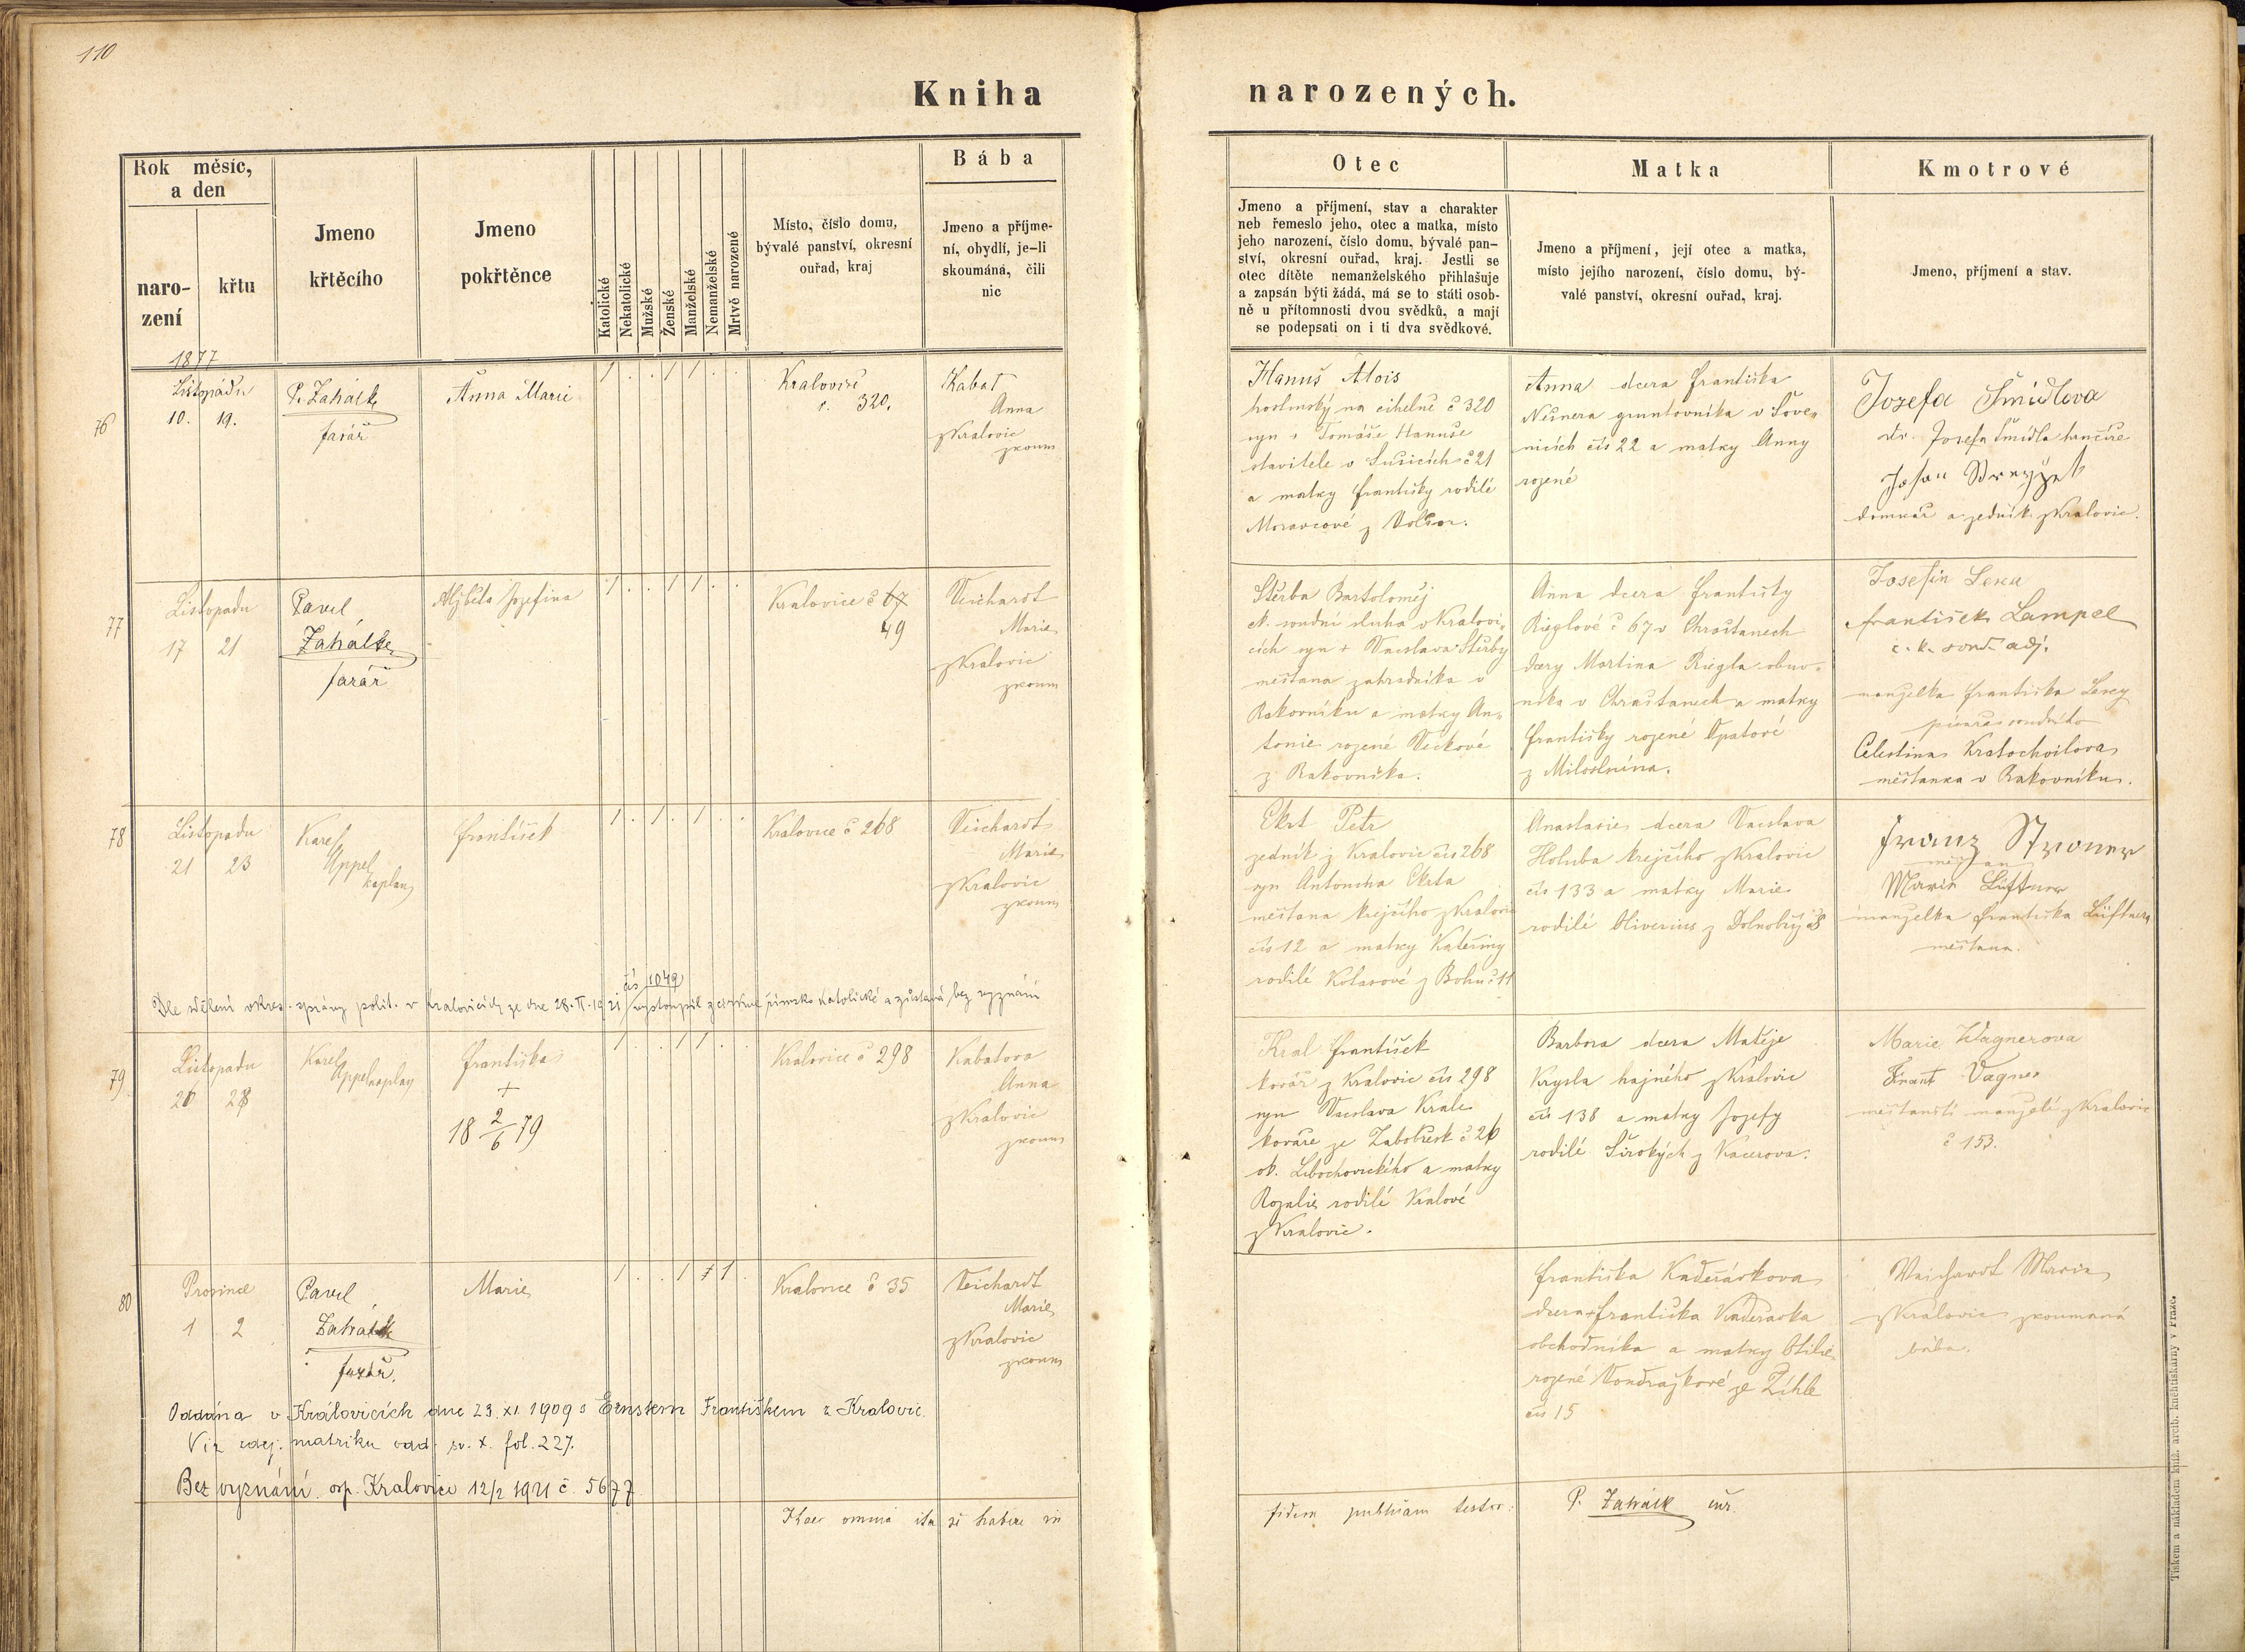 110
Kniha narozených.
Rok měsíc,
a den
naro-
zení
křtu
Jmeno
křtěcího
Jmeno
pokřtěnce
Katolické
Nekatolické
Mužské
Ženské
Manželské
Nemanželské
Mrtvě narozené
Místo, číslo domu,
bývalé panství, okresní
ouřad, kraj
Bába
Jmeno a příjme-
ní, obydlí, je-li
skoumána, čili
nic
Otec
Jmeno a příjmení, stav a charakter
neb řemeslo jeho, otec a matka, místo
jeho narození, číslo domu, bývalé pan-
ství, okresní ouřad, kraj. Jestli se
otec dítěte nemanželského přihlašuje
a zapsán býti žádá, má se to státi osob-
ně u přítomnosti dvou svědků, a mají
se podepsati on i ti dva svědkové.
Matka
Jmeno a příjmení, její otec a matka,
místo jejího narození, číslo domu, bý-
valé panství, okresní ouřad, kraj.
Kmotrové
Jmeno, příjmení a stav.
1877
76
Listopadu
10. 19.
P. Zahálk
farář
Anna Marie
1 . . 1 1 . .
Kralovice
č. 320.
Kabat
Anna
z Kralovic
zkoum
Hanuš Alois
na cihelně č 320
syn + Tomáše Hanuše
stavitele v Sušicích č 21
a matky Františky rodilé
Moravcové z
Anna dcera Františka
gruntovníka v
nicích čís 22 a matky Anny
rozené
Josefa Šmídlova
dc. Josefa Šmídla
Johan
domkář a zedník z Kralovic.
77
Listopadu
17 21
Pavel
Zahálk
farář
Alžběta Jozefina
1 . . 1 1 . .
Kralovice č 67
49
Veichardt
Marie
z Kralovic
zkoum
Štěrba Bartoloměj
soudní sluha v Kralovi-
cích syn + Vacslava Štěrby
měštana zahradníka v
Rakovníku a matky An-
tonie rozené Věckové
z Rakovníka.
Anna dcera Františky
Rieglové č 67 v Chraštanech
dcery Martina Riegla obuv-
níka v Chraštanech a matky
Františky rozené Opatové
z Milostnína.
Josefin
František Lampel
c. k. soud. adj.
manželka Františka
písaře soudního
Celestina Kratochvilova
měštanka v Rakovníku.
78
Listopadu
21 23
Karel
Appel
kaplan
František
1 . 1 . 1 . .
Kralovice č 268
Veichardt
Marie
z Kralovic
zkoum
Ekrt Petr
zedník z Kralovic čís 268
syn Antonína Ekrta
měštana krejčího z Kralovic
čís 12 a matky Kateřiny
rodilé Kolarové z Bohu č 11
Anastasie dcera Vacslava
Holuba krejčího z Kralovic
čís 133 a matky Marie
rodilé Oliverius z
Franz
měštan
Marie Lüftner
manželka Františka Lüftnera
měštana.
čís 1049
Dle sdělení okres. správy polit. v Kralovicích ze dne 28.II.1921 vystoupil z církve římsko katolické a zůstává bez vyznání
79
Listopadu
26 28
Karel
Appel kaplan
Františka
+
18 2/6 79
1 . . 1 1 . .
Kralovice č 298
Kabatova
Anna
z Kralovic
zkoum
Kral František
kovář z Kralovic čís 298
syn Vacslava Krale
kováře ze č 26
ok. Libochovického a matky
Rozalie rodilé Kralové
z Kralovic.
Barbora dcera Matěje
Krysla hajného z Kralovic
čís 138 a matky Jozefy
rodilé Širokých z Kacerova.
Marie Wagnerova
Frant Vagner
měštanští manželé z Kralovic
č 153.
80
Prosince
1 2
Pavel
Zahálk
farář.
Marie
1 . . 1 1 1 .
Kralovice č 35
Veichardt
Marie
z Kralovic
zkoum
Františka Kadeřávkova
dcera + Františka Kadeřavka
obchodníka a matky Otilie
rozené Vondrašková ze Žihle
čís 15
Veichardt Marie
z Kralovic zkoumaná
bába.
Oddána v Královicích dne 23.XI.1909 s Ernstem Františkem z Kralovic.
Viz zdej. matriku odd. sv. X. fol. 227.
Bez vyznání. osp. Kralovice 12/2 1921 č. 5677
Haec omnia ita se habere in fidem publicam testor.
P. Zahálk
Tiskem a nákladem kníž. arcib. knihtiskárny v Praze.